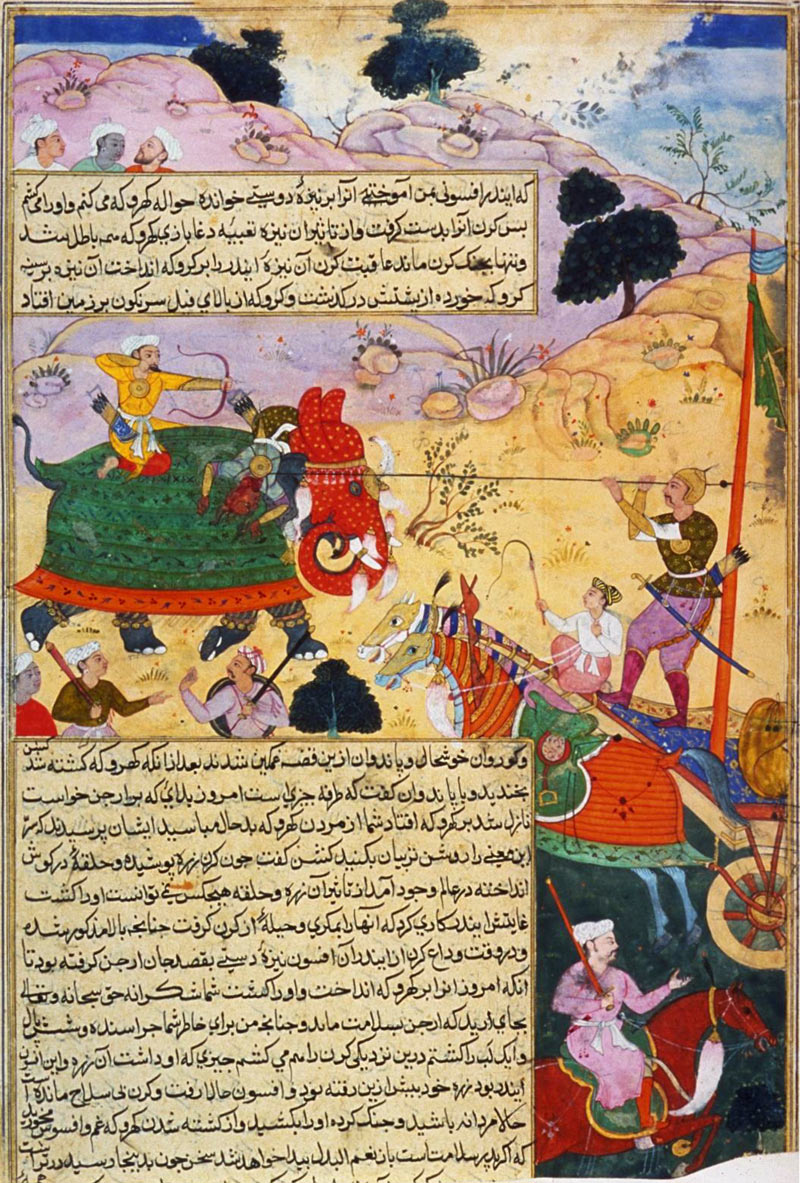 که ایندر افسونی بمن آموخته آنرا بر نیزهٔ دوستی خوانده حواله کهروکه می کنم و او را می کشم
پس کرن آنرا بدست گرفت و از تاثیر آن نیزه تعبیه دغابازی کهروکه همه باطل شد
و تنها بجنک کرن ماند عاقبت کرن آن نیزه ایندر را بر کروکه انداخت آن نیزه بر سینه
کروکه خورده از پشتش در کذشت و کروکه از بالای فیل سرنکون بر زمین افتاد
و کوروان خوشحال و پاندوان ازین قصه غمکین شدند بعد ازانکه کهروکه کشته شد کشن
بخندید و با پاندوان کفت که طرفه چیزی است امروز بلای که بر ارجن خواست
نازل شد بر کهروکه افتاد شما از مردن کهروکه بد حال مباشید ایشان پرسیدند که
این معنی را روشن تر بیان بکنید کشن کفت چون کرن زره پوشیده و حلقه در کوش
انداخته در عالم وجود آمد از تاثیر آن زره و حلقه هیچکس نمی توانست او را کشت
غایتش ایندر کاری کرد که آنها را بمکری و حیلهٔ از کرن کرفت چنانچه بالا مذکور شده
و در وقت وداع کرن از ایندر آن افسون نیزهٔ دستی بقصد جان ارجن کرفته بود تا
آنکه امروز آنرا بر کهروکه انداخت و او را کشت شما شکرانه حق سبحانه و تعالی
بجای آرید که ارجن بسلامت ماند و چنانچه من برای خاطر شما جراسنده و شش پال
و ایک لب را کشتم درین نزدیکی کرن را هم می کشم چیزی که او داشت آن زره و این افسون
ایندر بود زره خود بیشتر ازین رفته بود و افسون حالا رفت و کرن بی سلاح مانده است
حالا مردانه باشید و جنک کرده او را بکشید و از کشته شدن کهروکه غم و افسوس مخورید
که اکر پدر سلامت است باز نعم البدل پیدا خواهد شد سخن چون بدینجا رسید